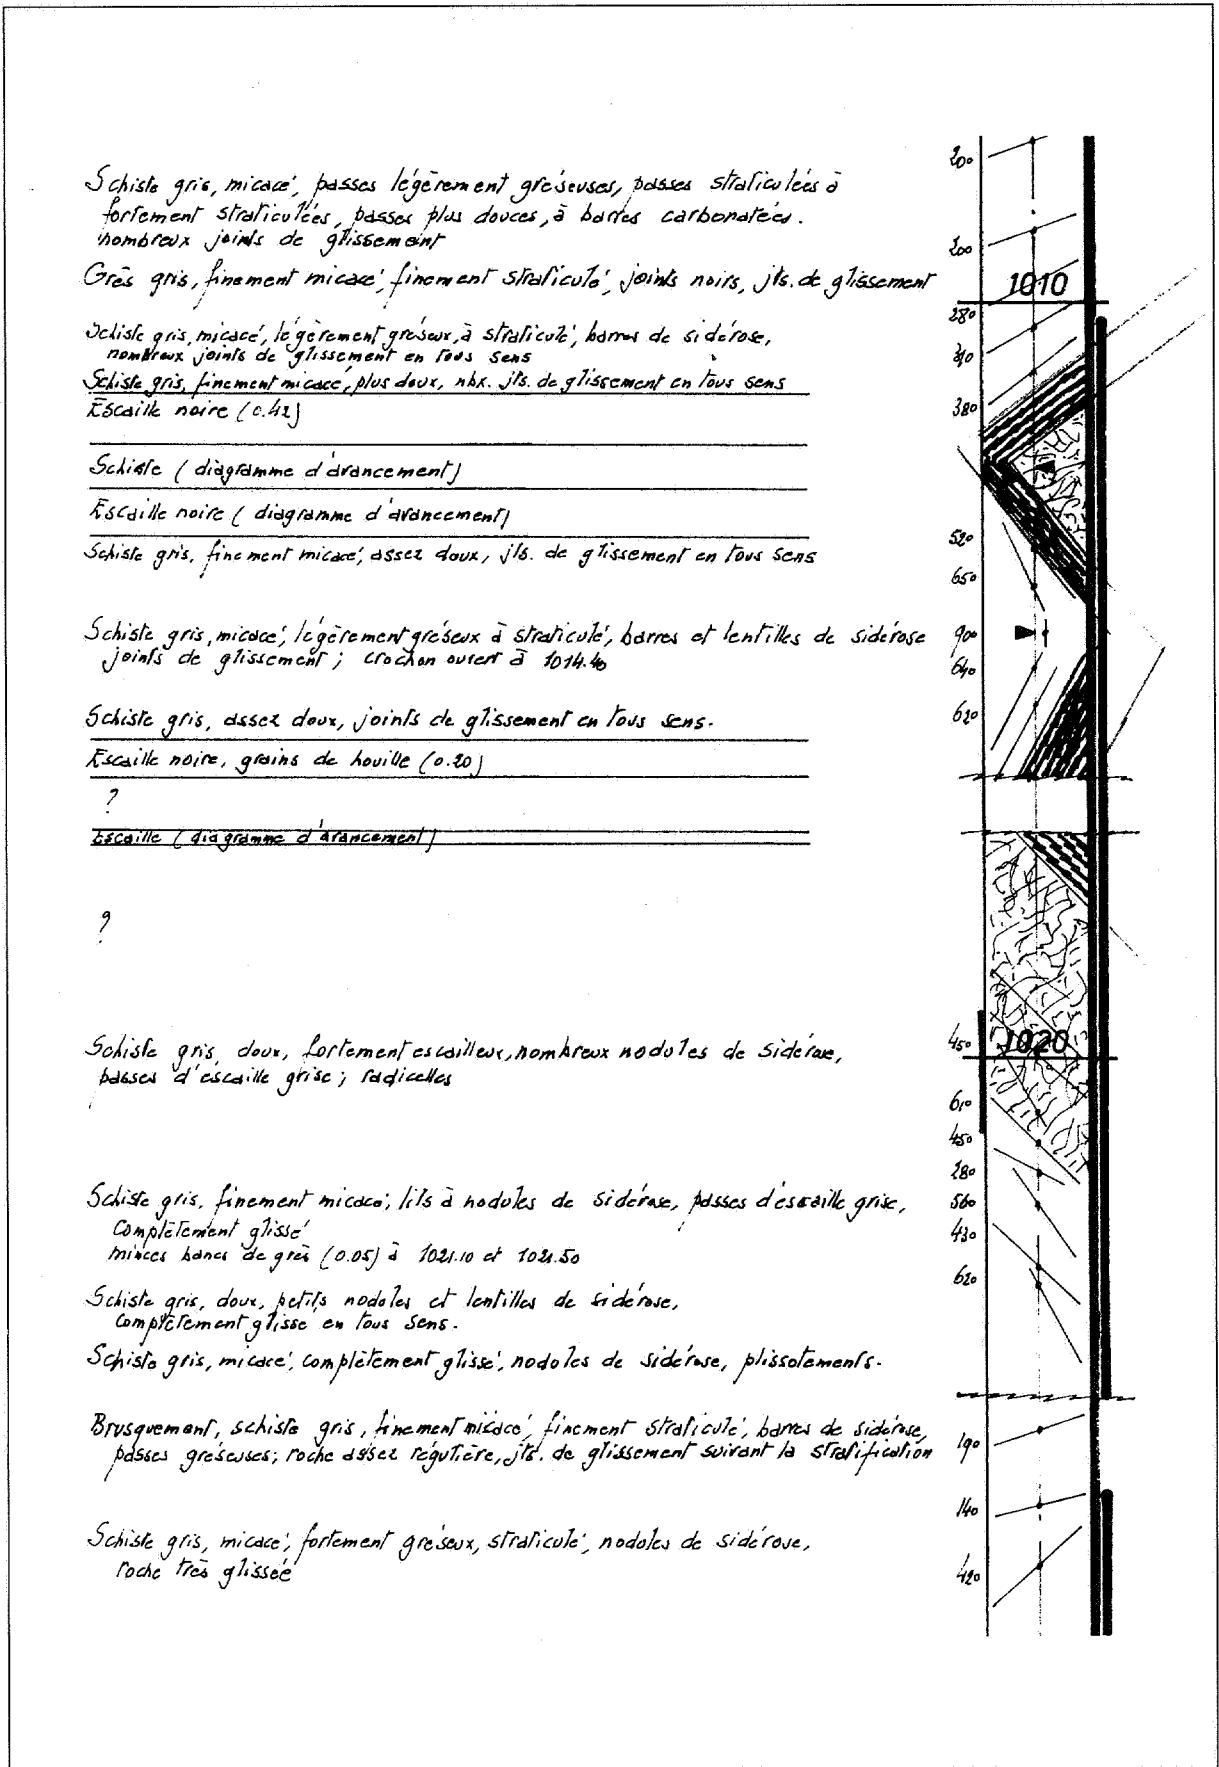 Schiste gris, micacé, passes légèrement gréseuses, passes straticulées à
fortement straticulées, passes plus douces, à barres carbonatées.
nombreux joints de glissement
Grès gris, finement micacé, finement straticulé, joints noirs, jts. de glissement
Schiste gris, micacé, légèrement gréseux, à straticulé, barres de sidérose,
nombreux joints de glissement en tous sens
Schiste gris, finement micacé, plus doux, nbx. jts. de glissement en tous sens
Escaille noire (0.42)
Schiste (diagramme d'avancement)
Escaille noire (diagramme d'avancement)
Schiste gris, finement micacé, assez doux, jts. de glissement en tous sens
Schiste gris, micacé, légèrement gréseux à straticulé, barres et lentilles de sidérose
joints de glissement; crochon ouvert à 1014.40
Schiste gris, assez doux, joints de glissement en tous sens.
Escaille noire, grains de houille (0.20)
?
Escaille (diagramme d'avancement)
?
Schiste gris, doux, fortement escailleux, nombreux nodules de sidérose,
passes d'escaille grise; radicelles
Schiste gris, finement micacé, lits à nodules de sidérose, passes d'escaille grise,
complètement glissé
minces bancs de grès (0.05) à 1021.10 et 1021.50
Schiste gris, doux, petits nodules et lentilles de sidérose,
complètement glissé en tous sens.
Schiste gris, micacé, complètement glissé, nodules de sidérose, plissotements.
Brusquement, schiste gris, finement micacé, finement straticulé, barres de sidérose,
passes gréseuses; roche assez régulière, jts. de glissement suivant la stratification
Schiste gris, micacé, fortement gréseux, straticulé, nodules de sidérose,
roche très glissée
20°
20°
1010
28°
31°
38°
52°
65°
90°
64°
62°
45°
1020
61°
45°
28°
56°
43°
62°
19°
14°
42°